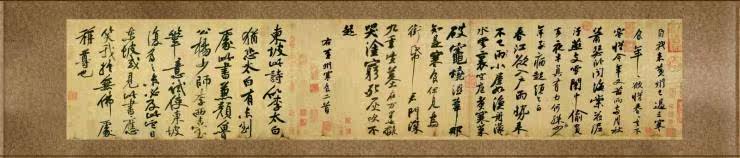 自我来黄州已過三寒
食年々欲惜春春去不
容惜今年又苦雨兩月秋
蕭瑟卧聞海棠花泥
汙燕支雪闇中偷負
去夜半真有力何殊病少
年子病起頭已白
春江欲入户雨勢来
不已雨小屋如漁舟濛々
水雲裏空庖煮寒菜
破竈燒濕葦那
知是寒食但見烏
銜帋君門深
九重墳墓在万里也擬
哭塗窮死灰吹不
起
右黄州寒食二首
東坡此詩似李太白
猶恐太白有未到
處此書兼顔魯
公楊少師李西臺
筆意試使東坡
復為之未必及此它日
東坡或見此書應
笑我於無佛處
稱尊也